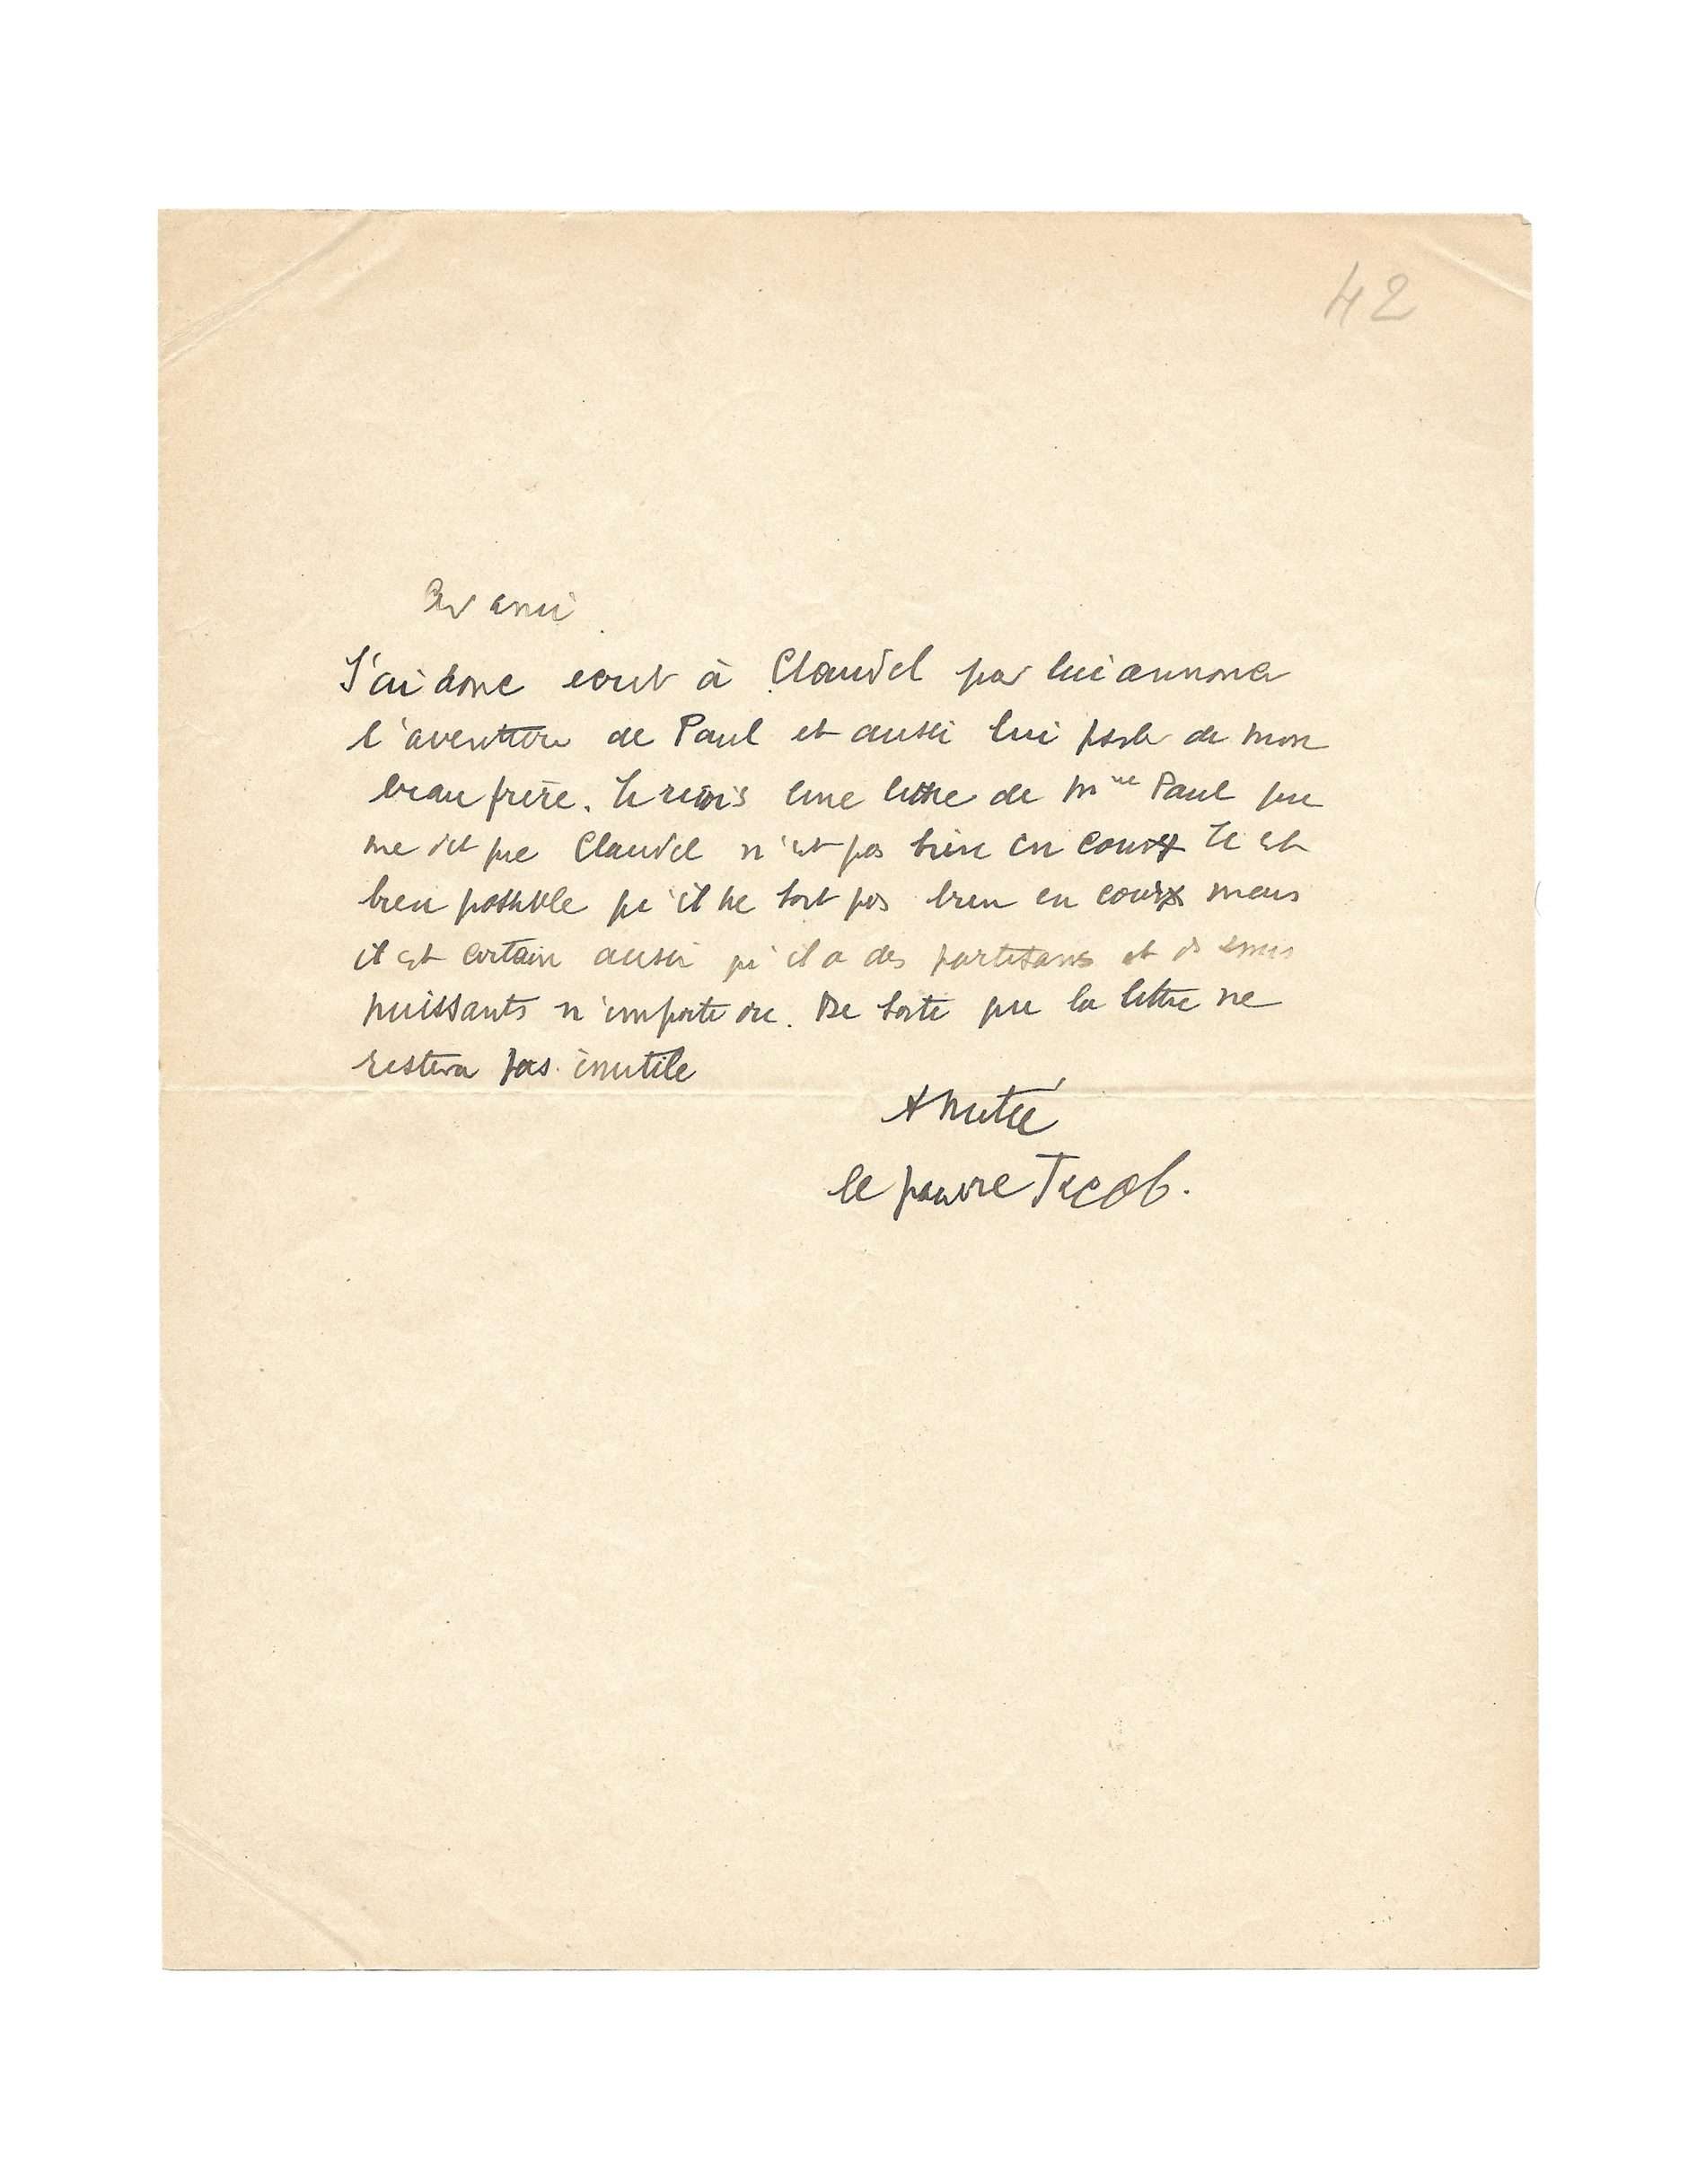 42
Cher ami
J'ai donc ecrit à Claudel pour lui annoncer
l'aventure de Paul et aussi lui parler de mon
beau frère. Je reçois une lettre de Mme Paul qui
me dit que Claudel n'est pas bien en cours Il est
bien possible qu'il ne soit pas bien en cours mais
il est certain aussi qu'il a des partisans et ds amis
puissants n'importe où. De sorte que la lettre ne
restera pas inutile
Amitié
le pauvre Jacob.